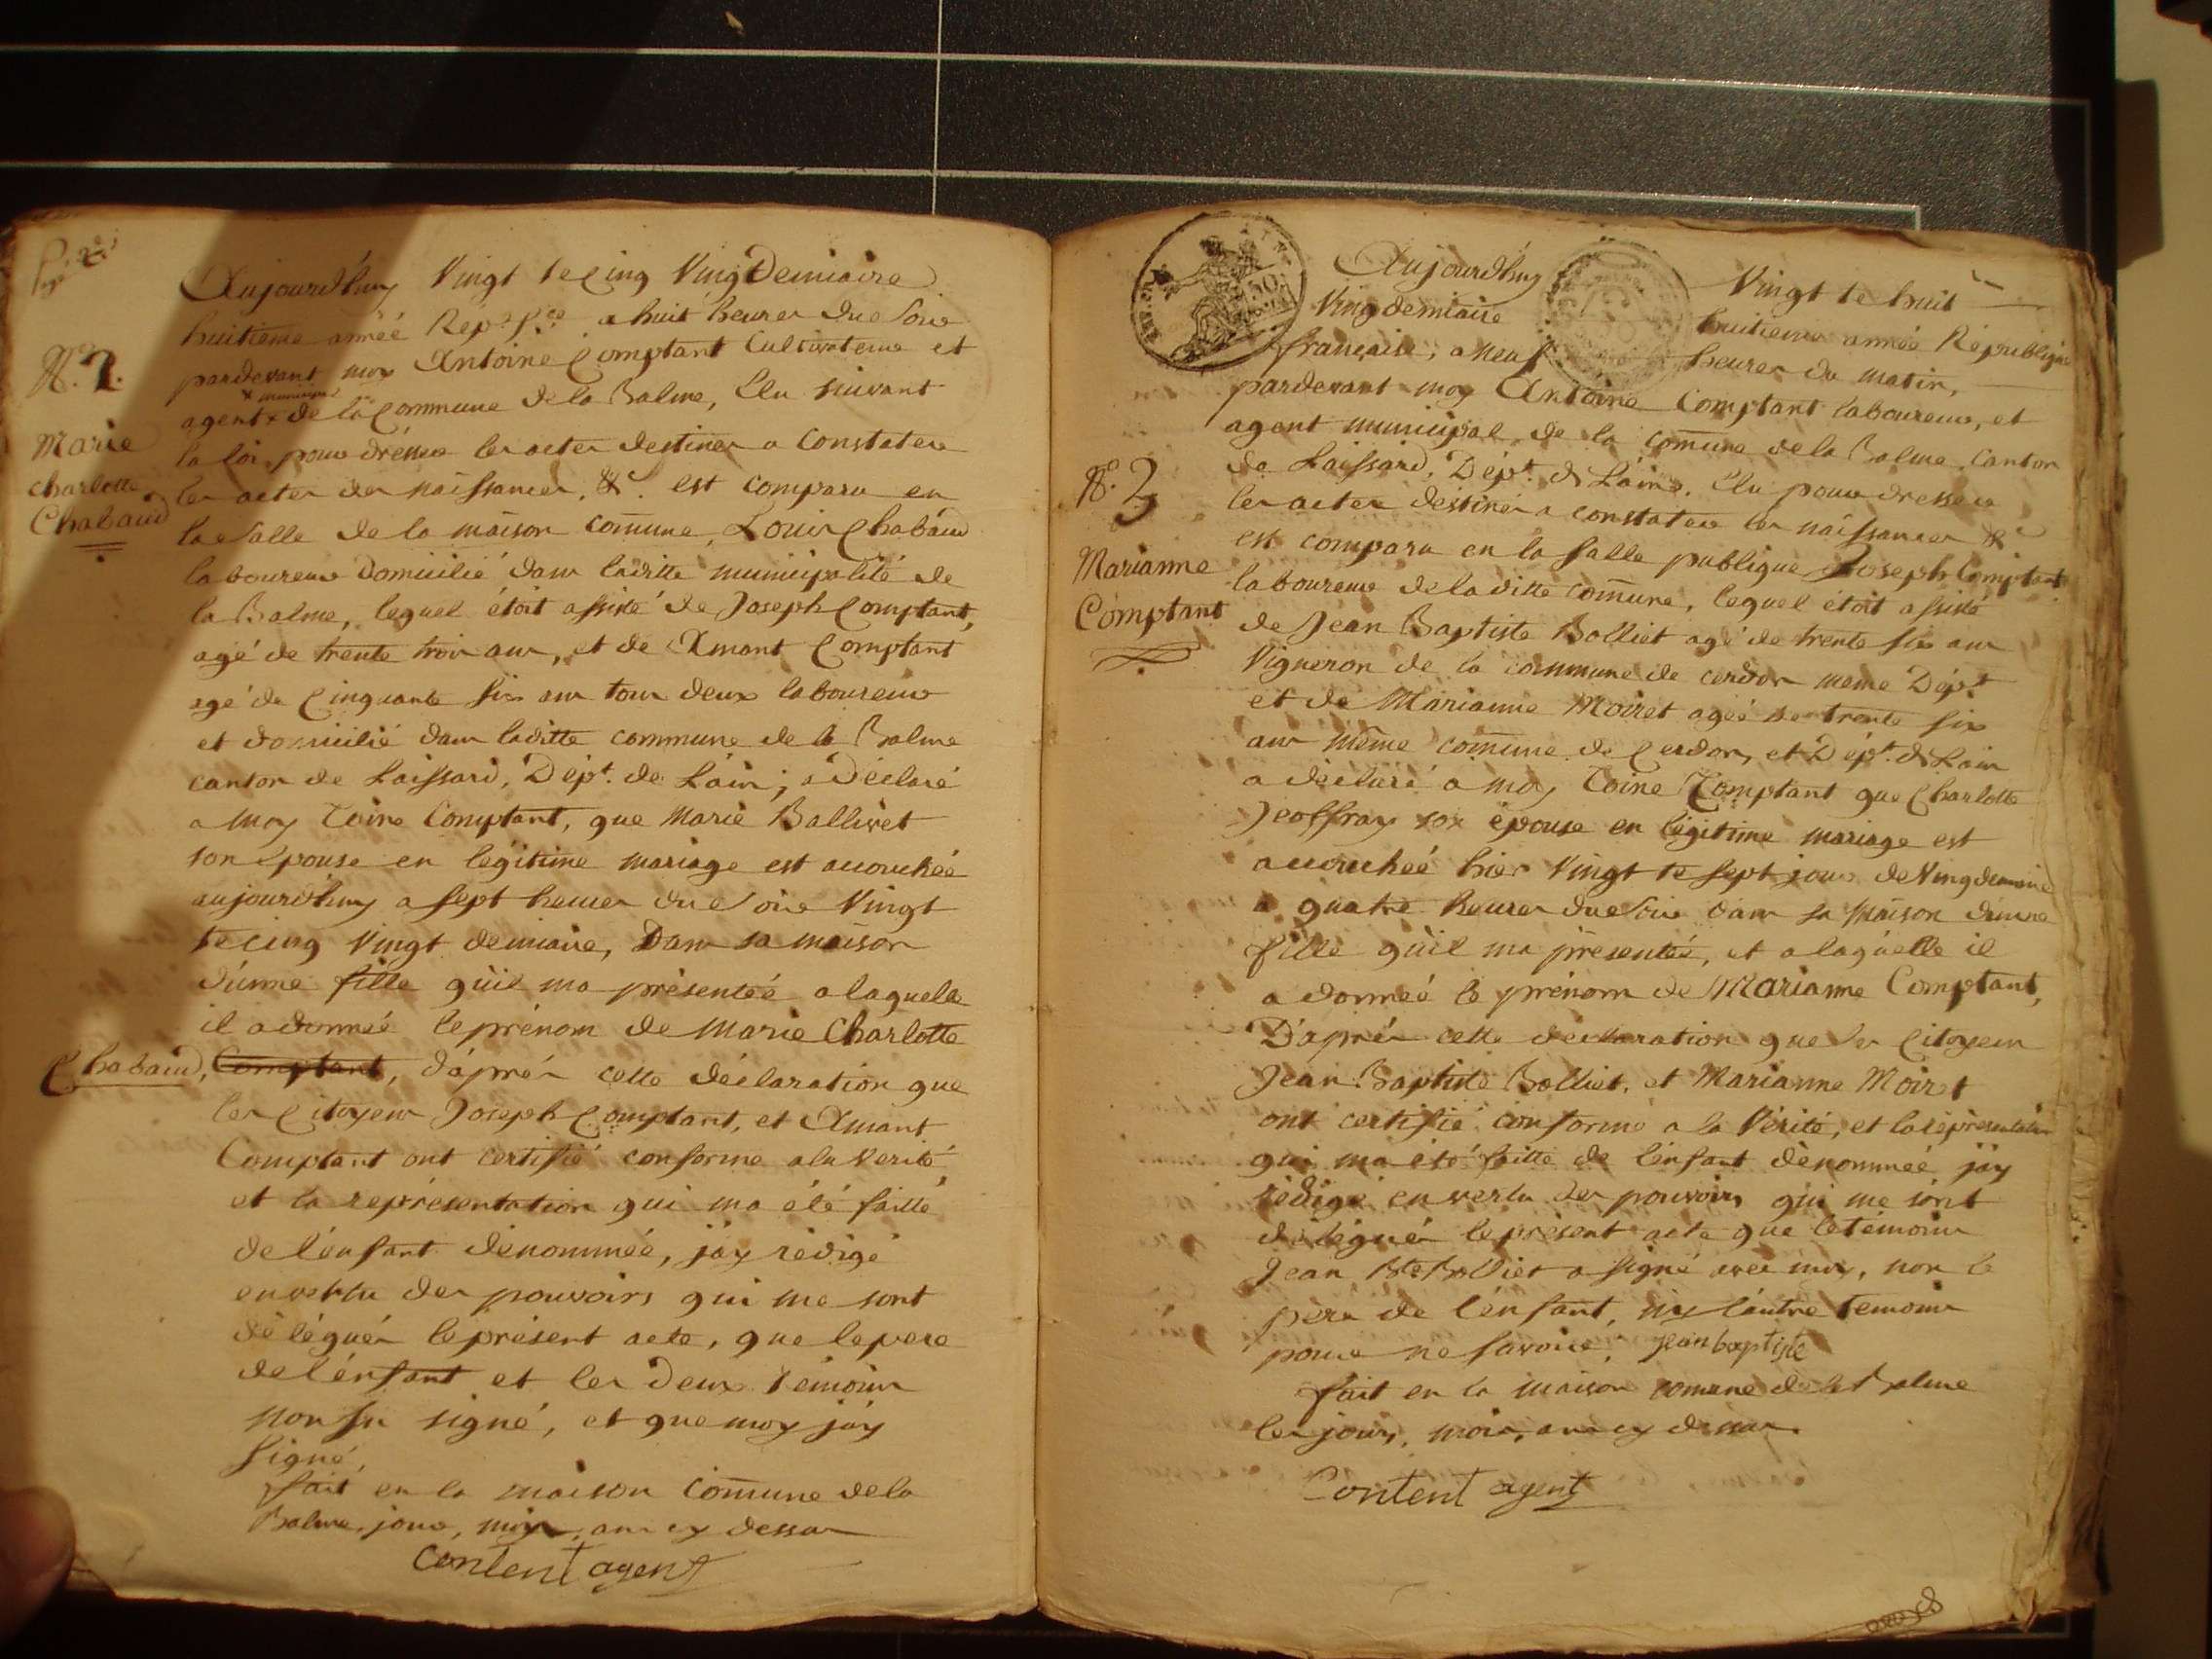 Aujourd'huy Vingt te Cinq Vingdemiaire
huitieme année Rep. f.ce a huit heures du Soir
pardevant moy Antoine Comptant Cultivateur et
x municipal
agent x de la Commune de la Balme, Elu suivant
la loi pour dresser les actes destinés a Constater
les actes des naissances, &c. est comparu en
la Salle de la maison comune, Louis Chabaud
laboureur Domicilié dans laditte municipalité de
la Balme, lequel étoit assisté de Joseph Comptant,
agé de trente trois ans, et de Amant Comptant
agé de Cinquante six ans tous deux laboureurs
et domicilié dans laditte commune de la Balme
canton de Laissard, Dépt. de Láin; a Déclaré
a moy Toine Comptant, que Marie Ballivet
son Epouse en legitime mariage est accouchée
aujourd'huy a sept heures du Soire Vingt
te cinq Vingt demiaire, Dans sa maison
d'unne fille qu'il ma présentéé a laquelle
il a donnée le prénom de Marie Charlotte
Chabaud, Comptant, d'áprés cette déclaration que
les Citoyens Joseph Comptant, et Amant
Comptant ont certifié conforme a la verité
et la représentation qui ma été faitte
de l'énfant dénommée, jáy rédigé
en vertu des pouvoirs qui me sont
délégués le présent acte, que le pere
de l'énfant et les deux témoins
non su signé, et que moy jáy
Signé,
fait en la maison comune de la
Balme, jours, mois, ans cy dessus
content agent
N.o 2.
Marie
Charlotte
Chabaud
Aujourd'huy Vingt te huit
Vingdemiaire huitieme année République
française, a neuf heures du matin,
pardevant moy Antoine Comptant laboureur, et
agent municipal de la comune de la Balme, Canton
de Laissard, Dépt. de Láin. Elu pour dresser
les actes destinés a constater les naissances &c
est comparu en la salle publique Joseph Comptant
laboureur de laditte comune, lequel étoit assisté
de Jean Baptiste Bolliet agé de trente six ans
Vigneron de la commune de cerdon meme Dépt
et de Marianne Moiret agéé de trente six
ans même comune de Cerdon, et Dépt. de Lain
a déclaré a moy Toine Comptant que Charlotte
Jeoffray son épouse en légitime mariage est
accouchéé hier Vingt te sept jour de Vingdemiaire
a quatre heures du Soir dans sa maison d'unne
fille qu'il ma présentéé, et a laquelle il
a donnéé le prénom de Marianne Comptant,
D'aprés cette déclaration que les Citoyens
Jean Baptiste Bolliet, et Marianne Moiret
ont certifié conforme a la Vérité, et la représentation
qui ma été faitte de l'énfant dénomméé jáy
rédigé en vertu des pouvoirs qui me sont
délégués le présent acte que le témoins
Jean Bte Bolliet a signé avec moy, non le
pere de l'énfant, ny l'áutre temoins
pour ne savoir, jean baptiste
fait en la maison comune de la Balme
les jours, mois, ans cy dessus.
Content agent
N.o 3
Marianne
Comptant